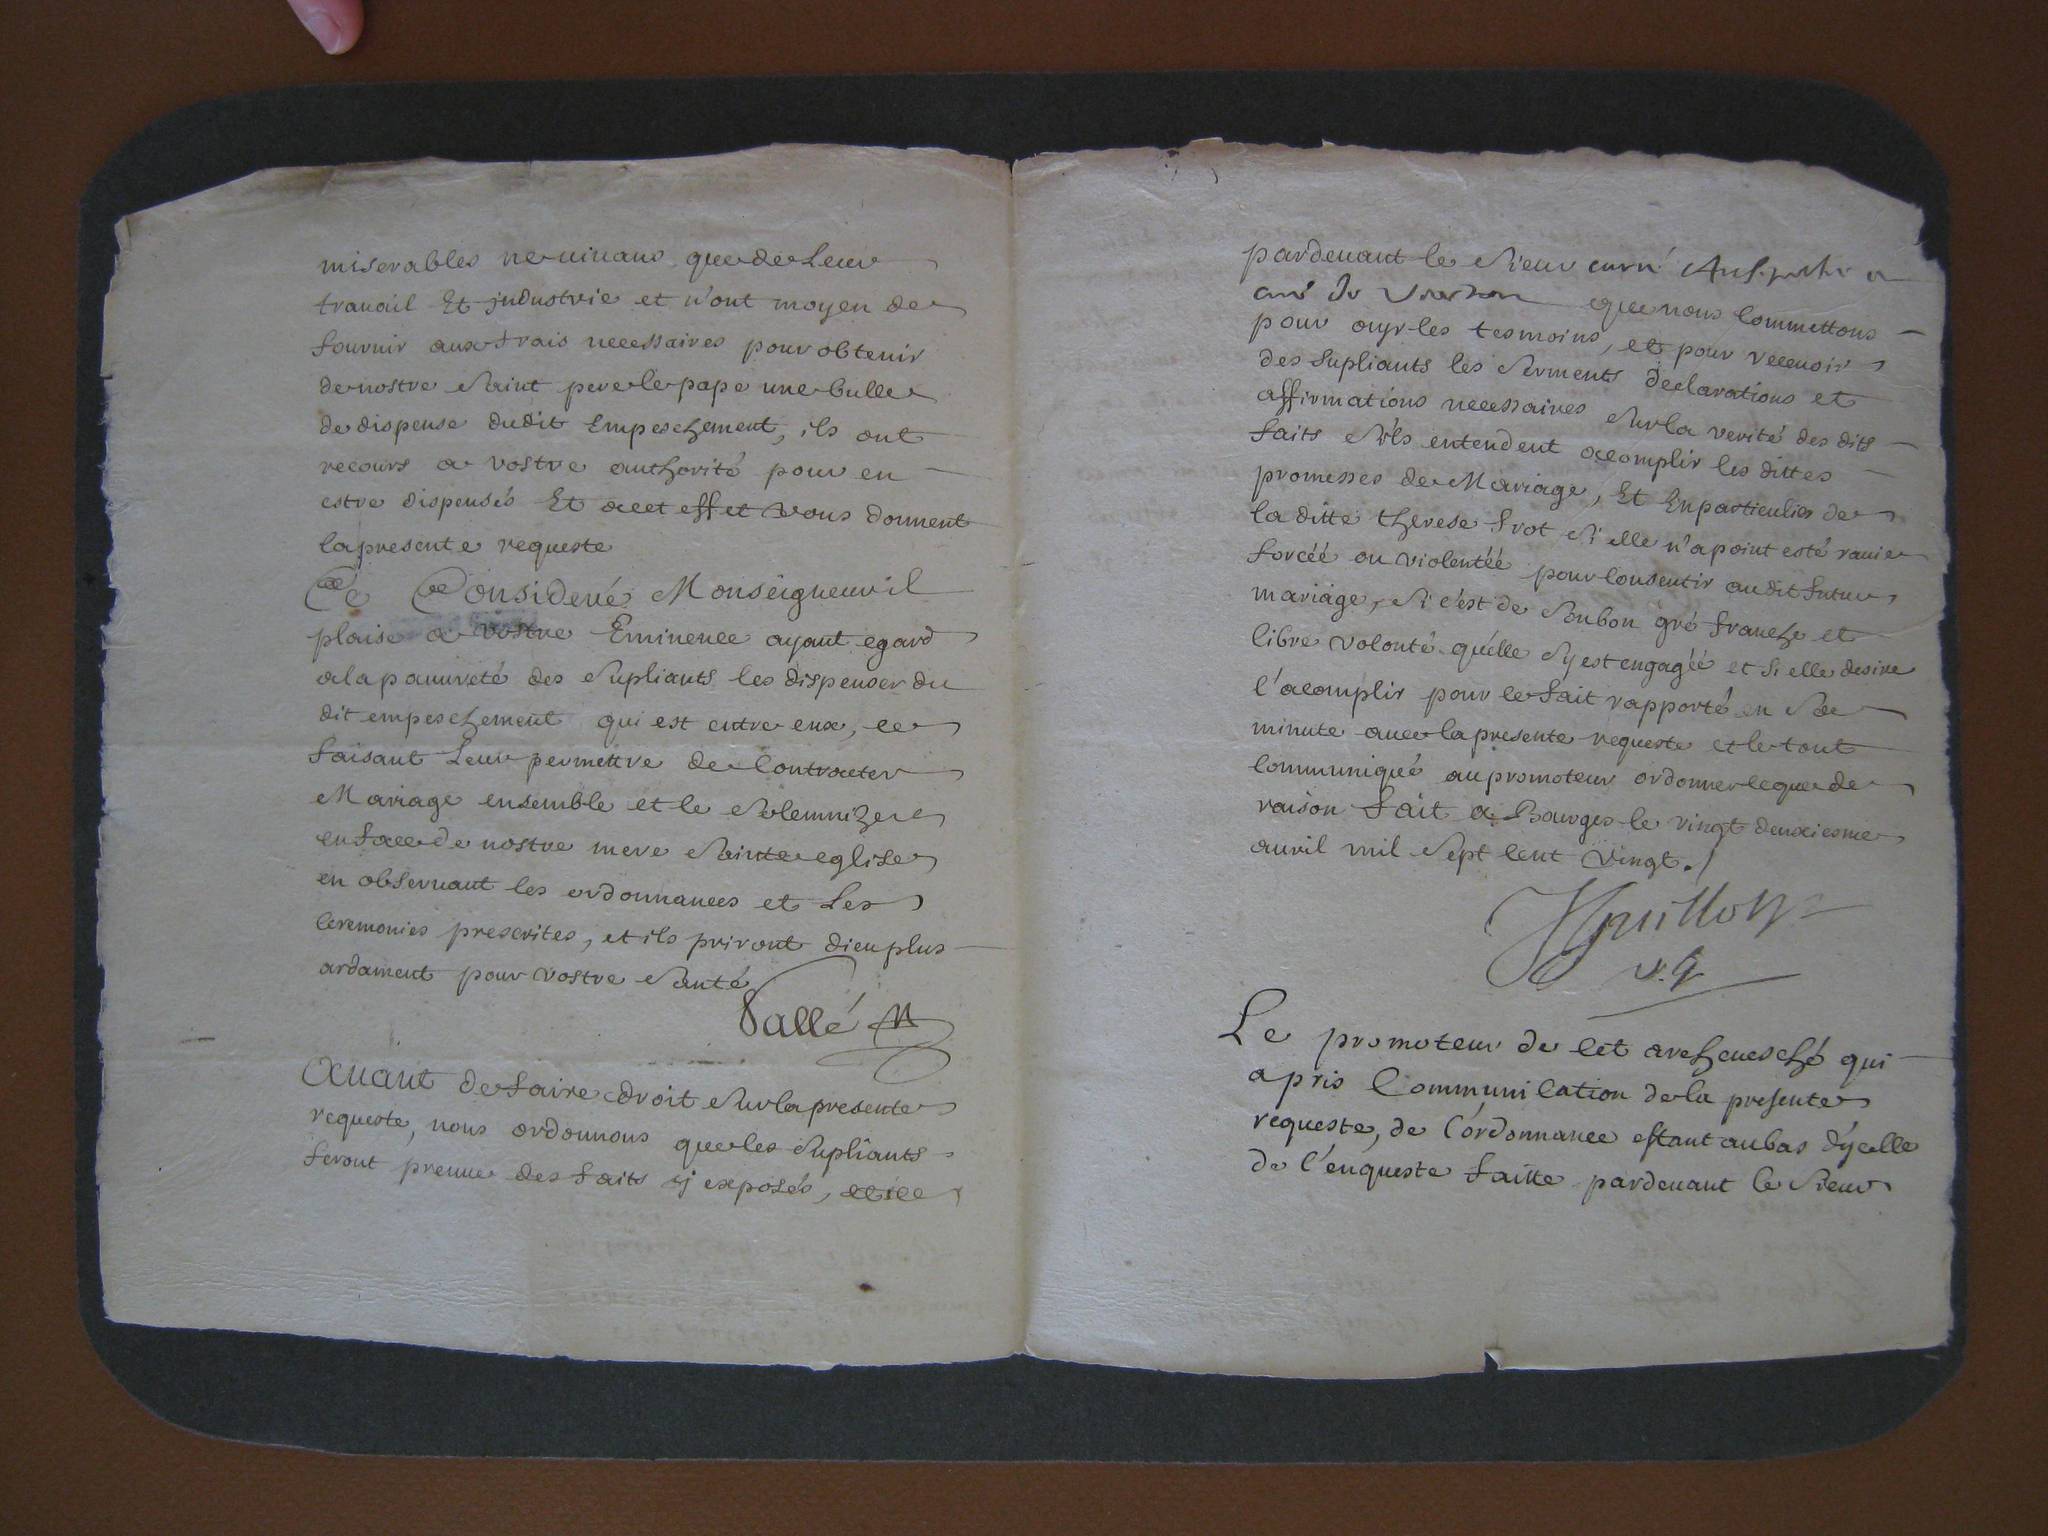 miserables ne uiuans que de Leur
trauail Et jndustrie et n'ont moyen de
fournir aux frais necessaires pour obtenir
de nostre saint pere le pape une bulle
de dispense dudit Empeschement, ils ont
recours a vostre authorité pour en
estre dispensés Et a cet effet vous donnent
la presente requeste
Ce Consideré Monseigneur il
plaise a vostre Eminence ayant egard
a la pauureté des supliants les dispenser du
dit empeschement qui est entre eux, ce
faisant Leur permettre de Contracter
Mariage ensemble et le solemnizer
en face de nostre mere sainte eglise
en obseruant les ordonnances et Les
Ceremonies prescrites, et ils priront dieu plus
ardament pour vostre santé
Vallé
Auant de faire droit sur la presente
requeste, nous ordonnons que les supliants
feront preuue des faits cy exposés, et ce
pardeuant le sieur curé
curé de Vierzon que nous Commettons
pour ouyr les tesmoins, et pour receuoir
des supliants les serments declarations et
affirmations necessaires sur la verité des dits
faits s'ils entendent acomplir les dittes
promesses de Mariage, Et En particulier de
la ditte therese frot si elle n'a point esté rauie
forcéé ou violentéé pour Consentir au dit futur
mariage, si c'est de son bon gré franche et
libre volonté qu'elle s'y est engagéé et si elle desire
l'acomplir pour le fait rapporté en sa
minute auec la presente requeste et le tout
Communiqué au promoteur ordonner ce que de
raison fait a Bourges le vingt deuxiesme
auril mil sept Cent vingt./
v.g
Le promoteur de Cet archeuesché qui
a pris Communication de la presente
requeste, de l'ordonnance estant au bas d'ycelle
de l'enqueste faitte pardeuant le sieur